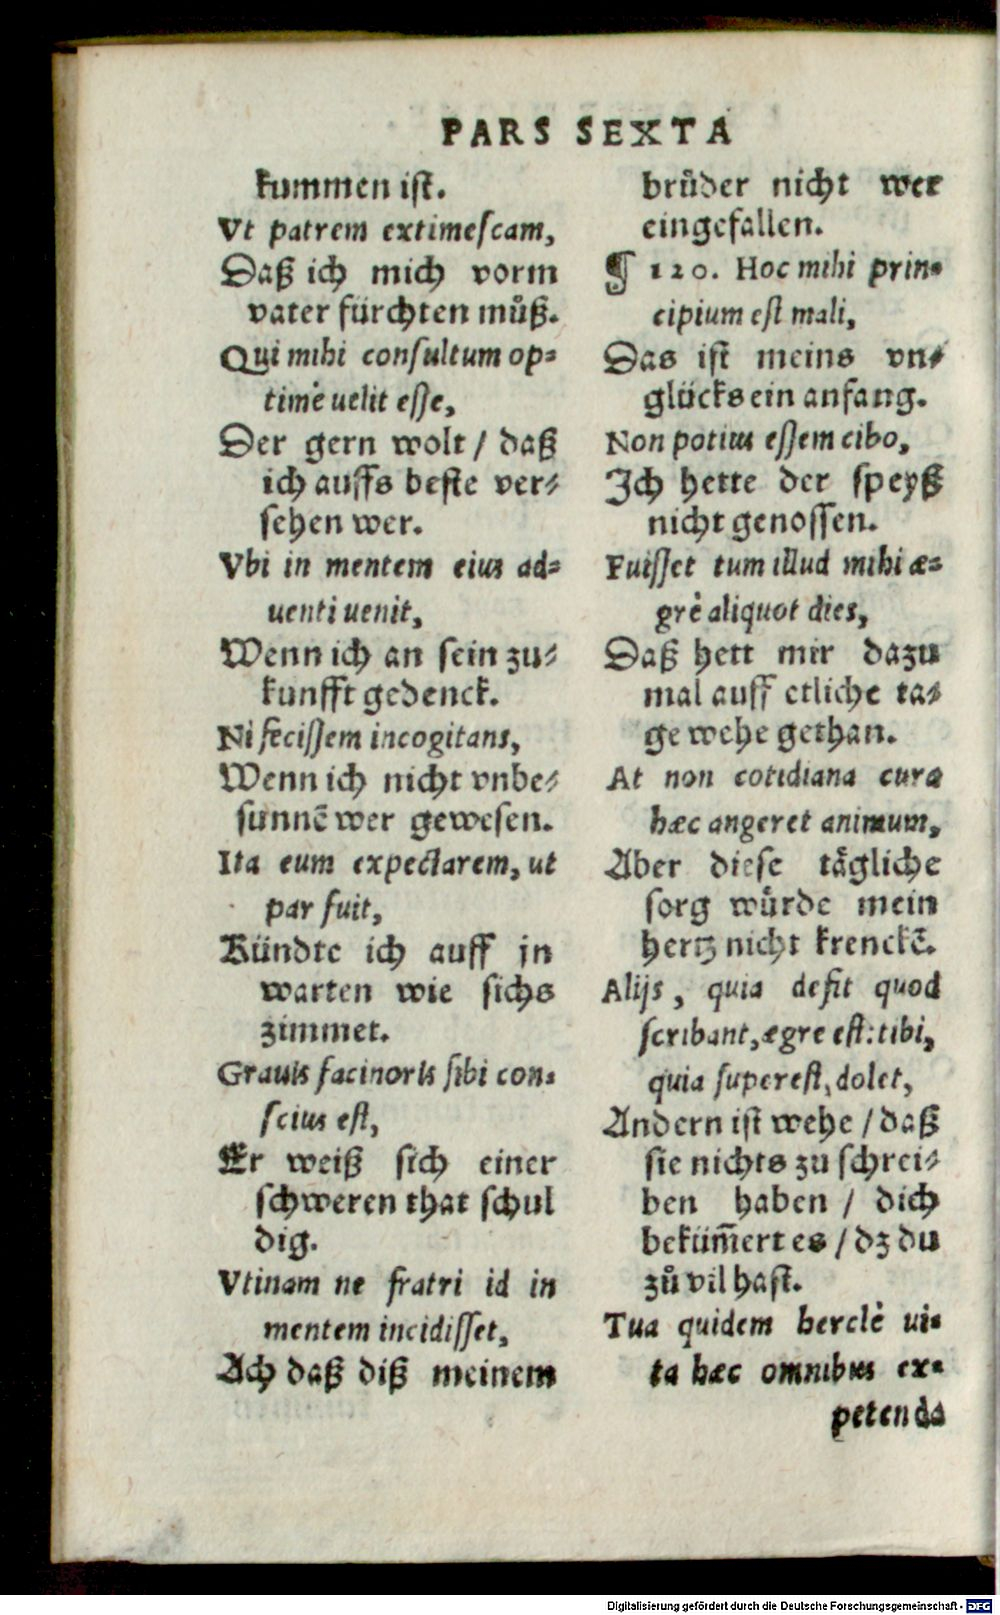 PARS SEXTA
kummen ist.
Vt patrem extimescam,
Daß ich mich vorm
vater fürchten müß.
Qui mihi consultum op=
timè uelit esse,
Der gern wolt / daß
ich auffs beste ver=
sehen wer.
Vbi in mentem eius ad=
uenti uenit,
Wenn ich an sein zu=
kunfft gedenck.
Ni fecissem incogitans,
Wenn ich nicht vnbe=
sunnẽ wer gewesen.
Ita eum expectarem, ut
par fuit,
Kündte ich auff jn
warten wie sichs
zimmet.
Grauis facinoris sibi con=
scius est,
Er weiß sich einer
schweren that schul
dig.
Vtinam ne fratri id in
mentem incidisset,
Ach daß diß meinem
brůder nicht wer
eingefallen.
¶ 120. Hoc mihi prin=
cipium est mali,
Das ist meins vn=
glücks ein anfang.
Non potius essem cibo,
Ich hette der speyß
nicht genossen.
Fuisset tum illud mihi æ=
grè aliquot dies,
Daß hett mir dazu
mal auff etliche ta=
ge wehe gethan.
At non cotidiana cura
hæc angeret animum,
Aber diese tägliche
sorg würde mein
hertz nicht krenckẽ.
Alijs, quia defit quod
scribant, ægre est: tibi,
quia superest, dolet,
Andern ist wehe / daß
sie nichts zu schrei=
ben haben / dich
beküm̃ert es / dz du
zů vil hast.
Tua quidem herclè ui=
ta hæc omnibus ex=
petenda
Digitalisierung gefördert durch die Deutsche Forschungsgemeinschaft - DFG